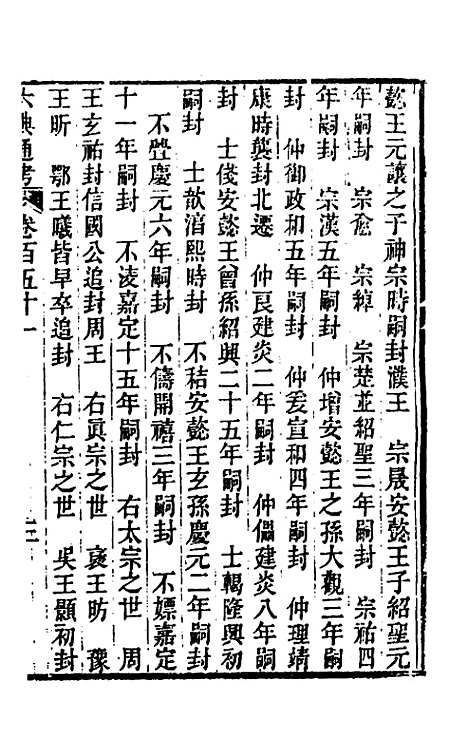 懿王元讓之子神宗時嗣封濮王　宗晟安懿王子紹聖元
年嗣封　宗愈　宗綽　宗楚並紹聖三年嗣封　宗祐四
年嗣封　宗漢五年嗣封　仲增安懿王之孫大觀三年嗣
封　仲御政和五年嗣封　仲爰宣和四年嗣封　仲理靖
康時襲封北遷　仲良建炎二年嗣封　仲儡建炎八年嗣
封　士俴安懿王曾孫紹興二十五年嗣封　士輵隆興初
嗣封　士歆淯熙時封　不秸安懿王玄孫慶元二年嗣封
　不璺慶元六年嗣封　不儔開禧三年嗣封　不嫖嘉定
十一年嗣封　不淩嘉定十五年嗣封　右太宗之世　周
王玄祐封信國公追封周王　右眞宗之世　褒王昉　豫
王昕　鄂王曦皆早卒追封　右仁宗之世　吳王顥初封
六典通考　卷百五十一